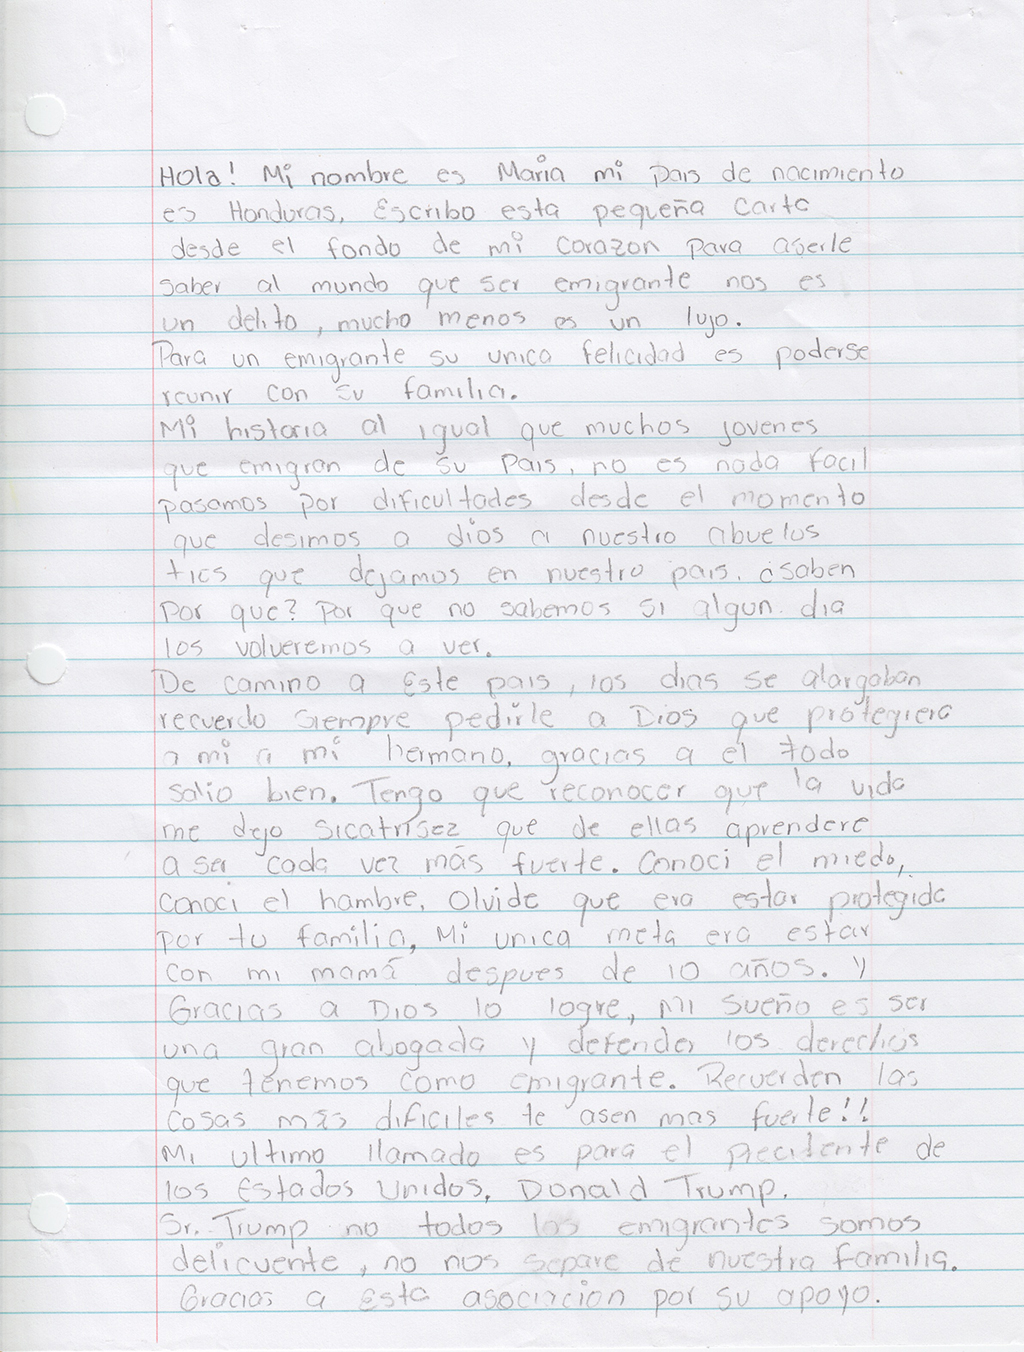 Hola! Mi nombre es Maria mi pais de nacimiento
es Honduras, Escribo esta pequeña carta
desde el fondo de mi corazon para aserle
saber al mundo que ser emigrante nos es
un delito, mucho menos es un lujo.
Para un emigrante su unica felicidad es poderse
reunir con su familia.
Mi historia al igual que muchos jovenes
que emigran de su pais, no es nada facil
pasamos por dificultades desde el momento
que desimos a dios a nuestro abuelos
tios que dejamos en nuestro pais. ¿saben
por que? Por que no sabemos si algun dia
los volveremos a ver.
De camino a este pais, los dias se alargaban
recuerdo siempre pedirle a Dios que protegiera
a mi a mi hermano, gracias a el todo
salio bien. Tengo que reconocer que la vida
me dejo sicatrisez que de ellas aprendere
a ser cada vez más fuerte. Conoci el miedo,
conoci el hambre, Olvide que era estar protegida
por tu familia, Mi unica meta era estar
con mi mamá despues de 10 años. y
Gracias a Dios lo logre, Mi sueño es ser
una gran abogada y defender los derechos
que tenemos como emigrante. Recuerden las
cosas más dificiles te asen mas fuerte!!
Mi ultimo llamado es para el precidente de
los Estados Unidos, Donald Trump.
Sr. Trump no todos los emigrantes somos
delicuente, no nos separe de nuestra familia.
Gracias a esta asociacion por su apoyo.